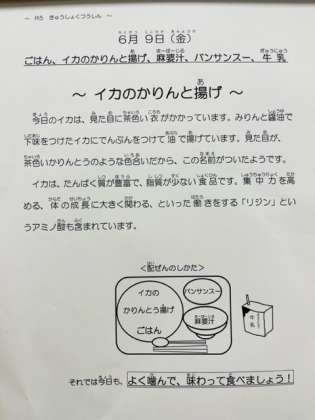 ～ R5 きゅうしょくつうしん ～
6月 9日（金）
ごはん、イカのかりんと揚げ、麻婆汁、バンサンスー、牛乳
～ イカのかりんと揚げ ～
今日のイカは、見た目に茶色い衣がかかっています。みりんと醤油で
下味をつけたイカにでんぷんをつけて油で揚げています。見た目が、
茶色いかりんとうのような色合いだから、この名前がついたようです。
イカは、たんぱく質が豊富で、脂質が少ない食品です。集中力を高
める、体の成長に大きく関わる、といった働きをする「リジン」とい
うアミノ酸も含まれています。
＜配ぜんのしかた＞
イカの
かりんとう揚げ
バンサンスー
麻婆汁
ごはん
牛乳
それでは今日も、よく噛んで、味わって食べましょう！